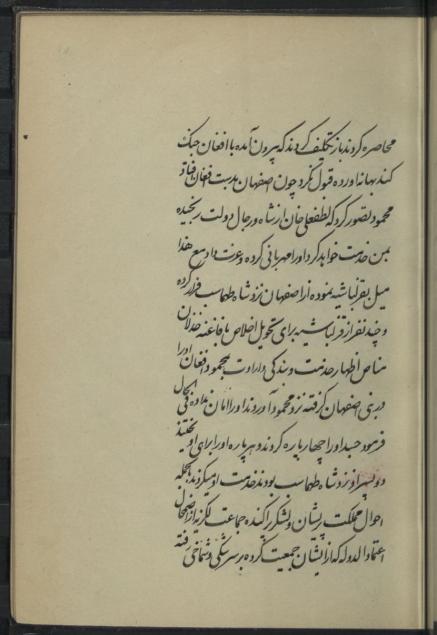 محاصره کردند باز تکلیف کردند که بیرون آمده با افغان جنک
کند بهانه آورده قبول نکرد چون اصفهان بدست افغان افتاد
محمود تصور کرد که لطفعلی خان از شاه و رجال دولت رنجیده
بمن خدمت خواهد کرد او را مهربانی کرده و عزت داد مع هذا
میل بقزلباشیه نموده از اصفهان نزد شاه طهماسب فرار کرده
و چند نفر از قزلباشیه برای تحویل اخلاص با فاغنه خذلان
مناص اظهار خدمت و بندکی و ارادت بمحمود افغان او را
در بنی اصفهان کرفته نزد محمود آوردند او را امان نداده فی الحال
فرمود جسد او را چهار پاره کردند و هر پاره او را برای او
دو پسر او نزد شاه طهماسب بودند خدمت او میکردند بالجمله
احوال مملکت پریشان و لشکر پراکنده جماعت لکزیه از
اعتماد الدوله که از ایشان جمعیت کرده بر سر شکی و شماخی رفته